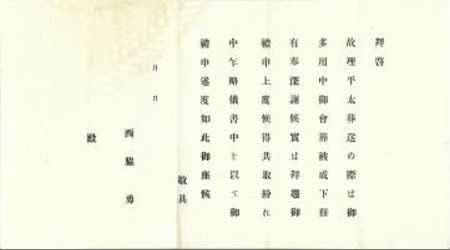 拜啓
故理平太葬送の際は御
多用中御會葬被成下難
有奉深謝候實は拜趨御
禮申上度候得共取紛れ
中乍略儀書中を以て御
禮申述度如此御座候
敬具
月 日
西脇 勇
殿